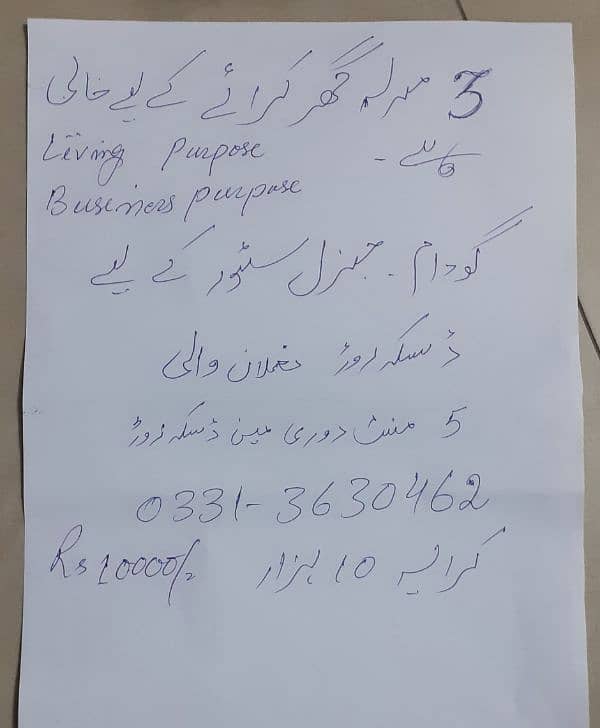 3 مرلہ گھر کرائے کے لیے خالی
ہے -
Living Purpose
Business purpose
گودام - جنرل سٹور کے لیے
ڈسکہ روڑ مغلاں والی
5 منٹ دوری مین ڈسکہ روڑ
0331-3630462
کرایہ 10 ہزار Rs 10000/-